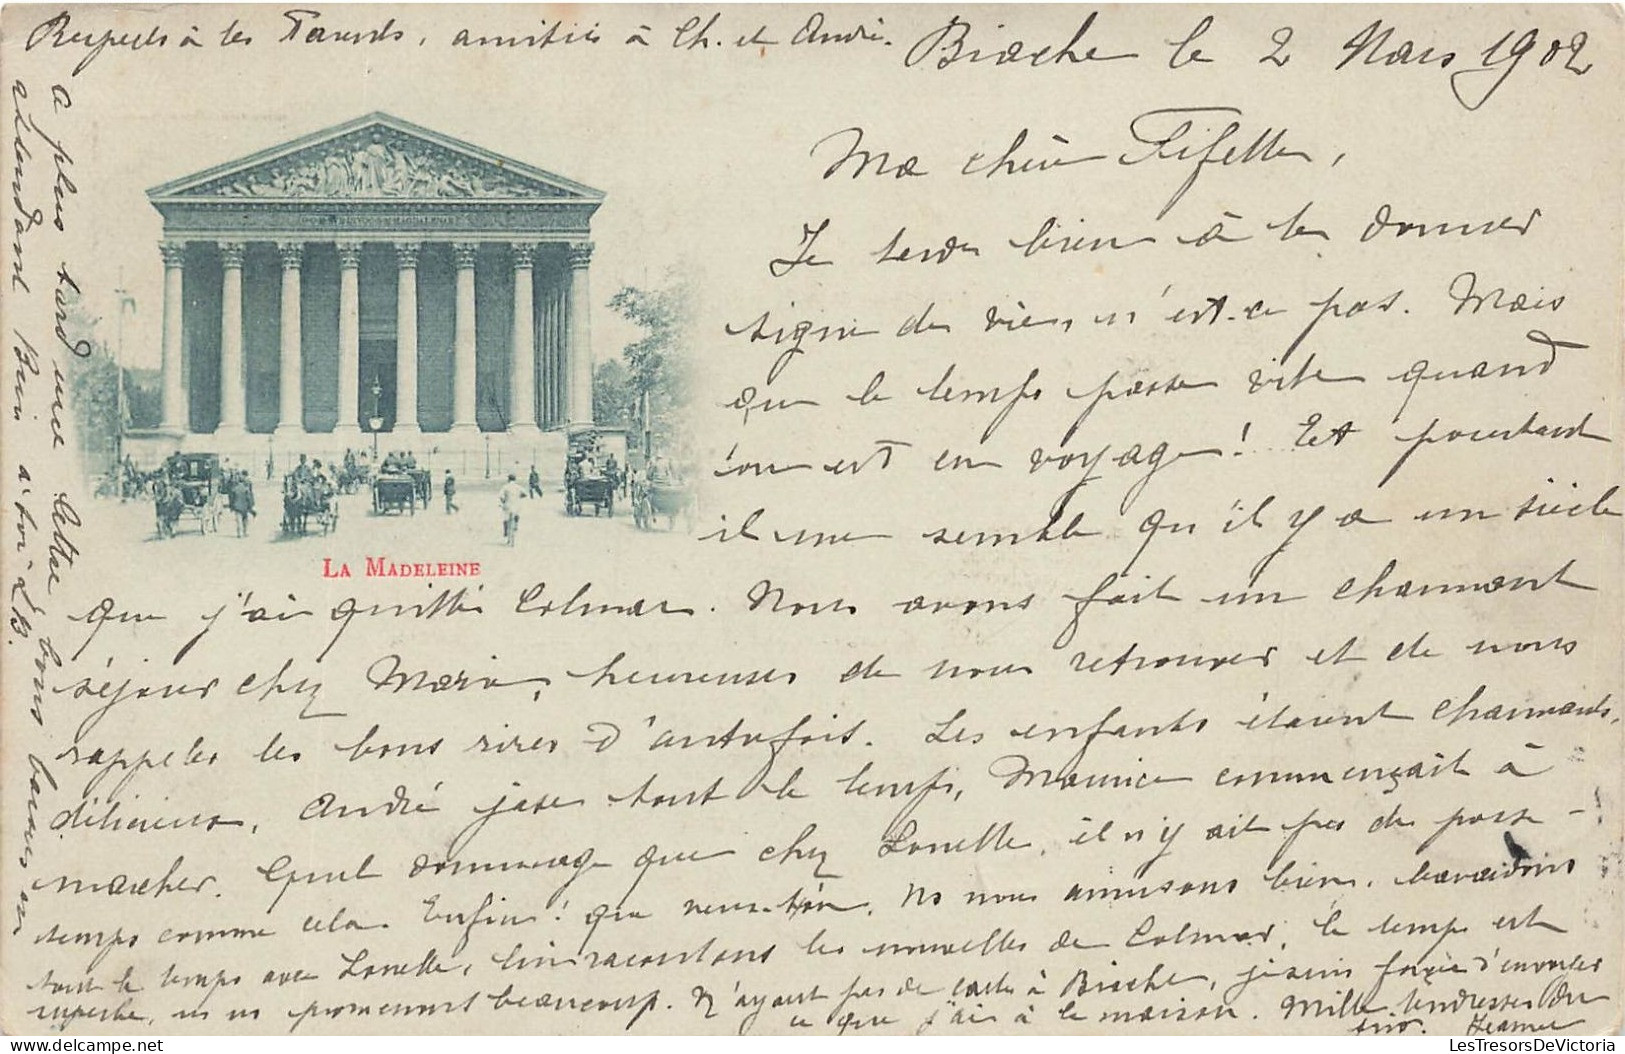 Respects à tes Parents, amitiés à Ch. et André.
Biache le 2 Mars 1902
Ma chère Fifette,
Je tarde bien à te donner
signe de vie, n'est-ce pas. Mais
que le temps passe vite quand
on est en voyage! Et pourtant
il me semble qu'il y a un siècle
LA MADELEINE
que j'ai quitté Colmar. Nous avons fait un charmant
séjour chez Marie, heureuses de nous retrouver et de nous
rappeler les bons rires d'autrefois. Les enfants étaient charmants,
délicieux, André jase tout le temps, Maurice commençait à
marcher. Quel dommage que chez Lonette, il n'y ait pas de passe-
temps comme cela. Enfin! que veux-tu. Ns nous amusons bien, bavardons
tout le temps avec Lonette, lui racontons les nouvelles de Colmar, le temps est
superbe, ns ns promenons beaucoup. N'ayant pas de carte à Biache, je suis forcée d'envoyer
ce que j'ai à la maison. Mille tendresses de
Jeanne
A plus tard une lettre, bons baisers en
attendant Bien à toi